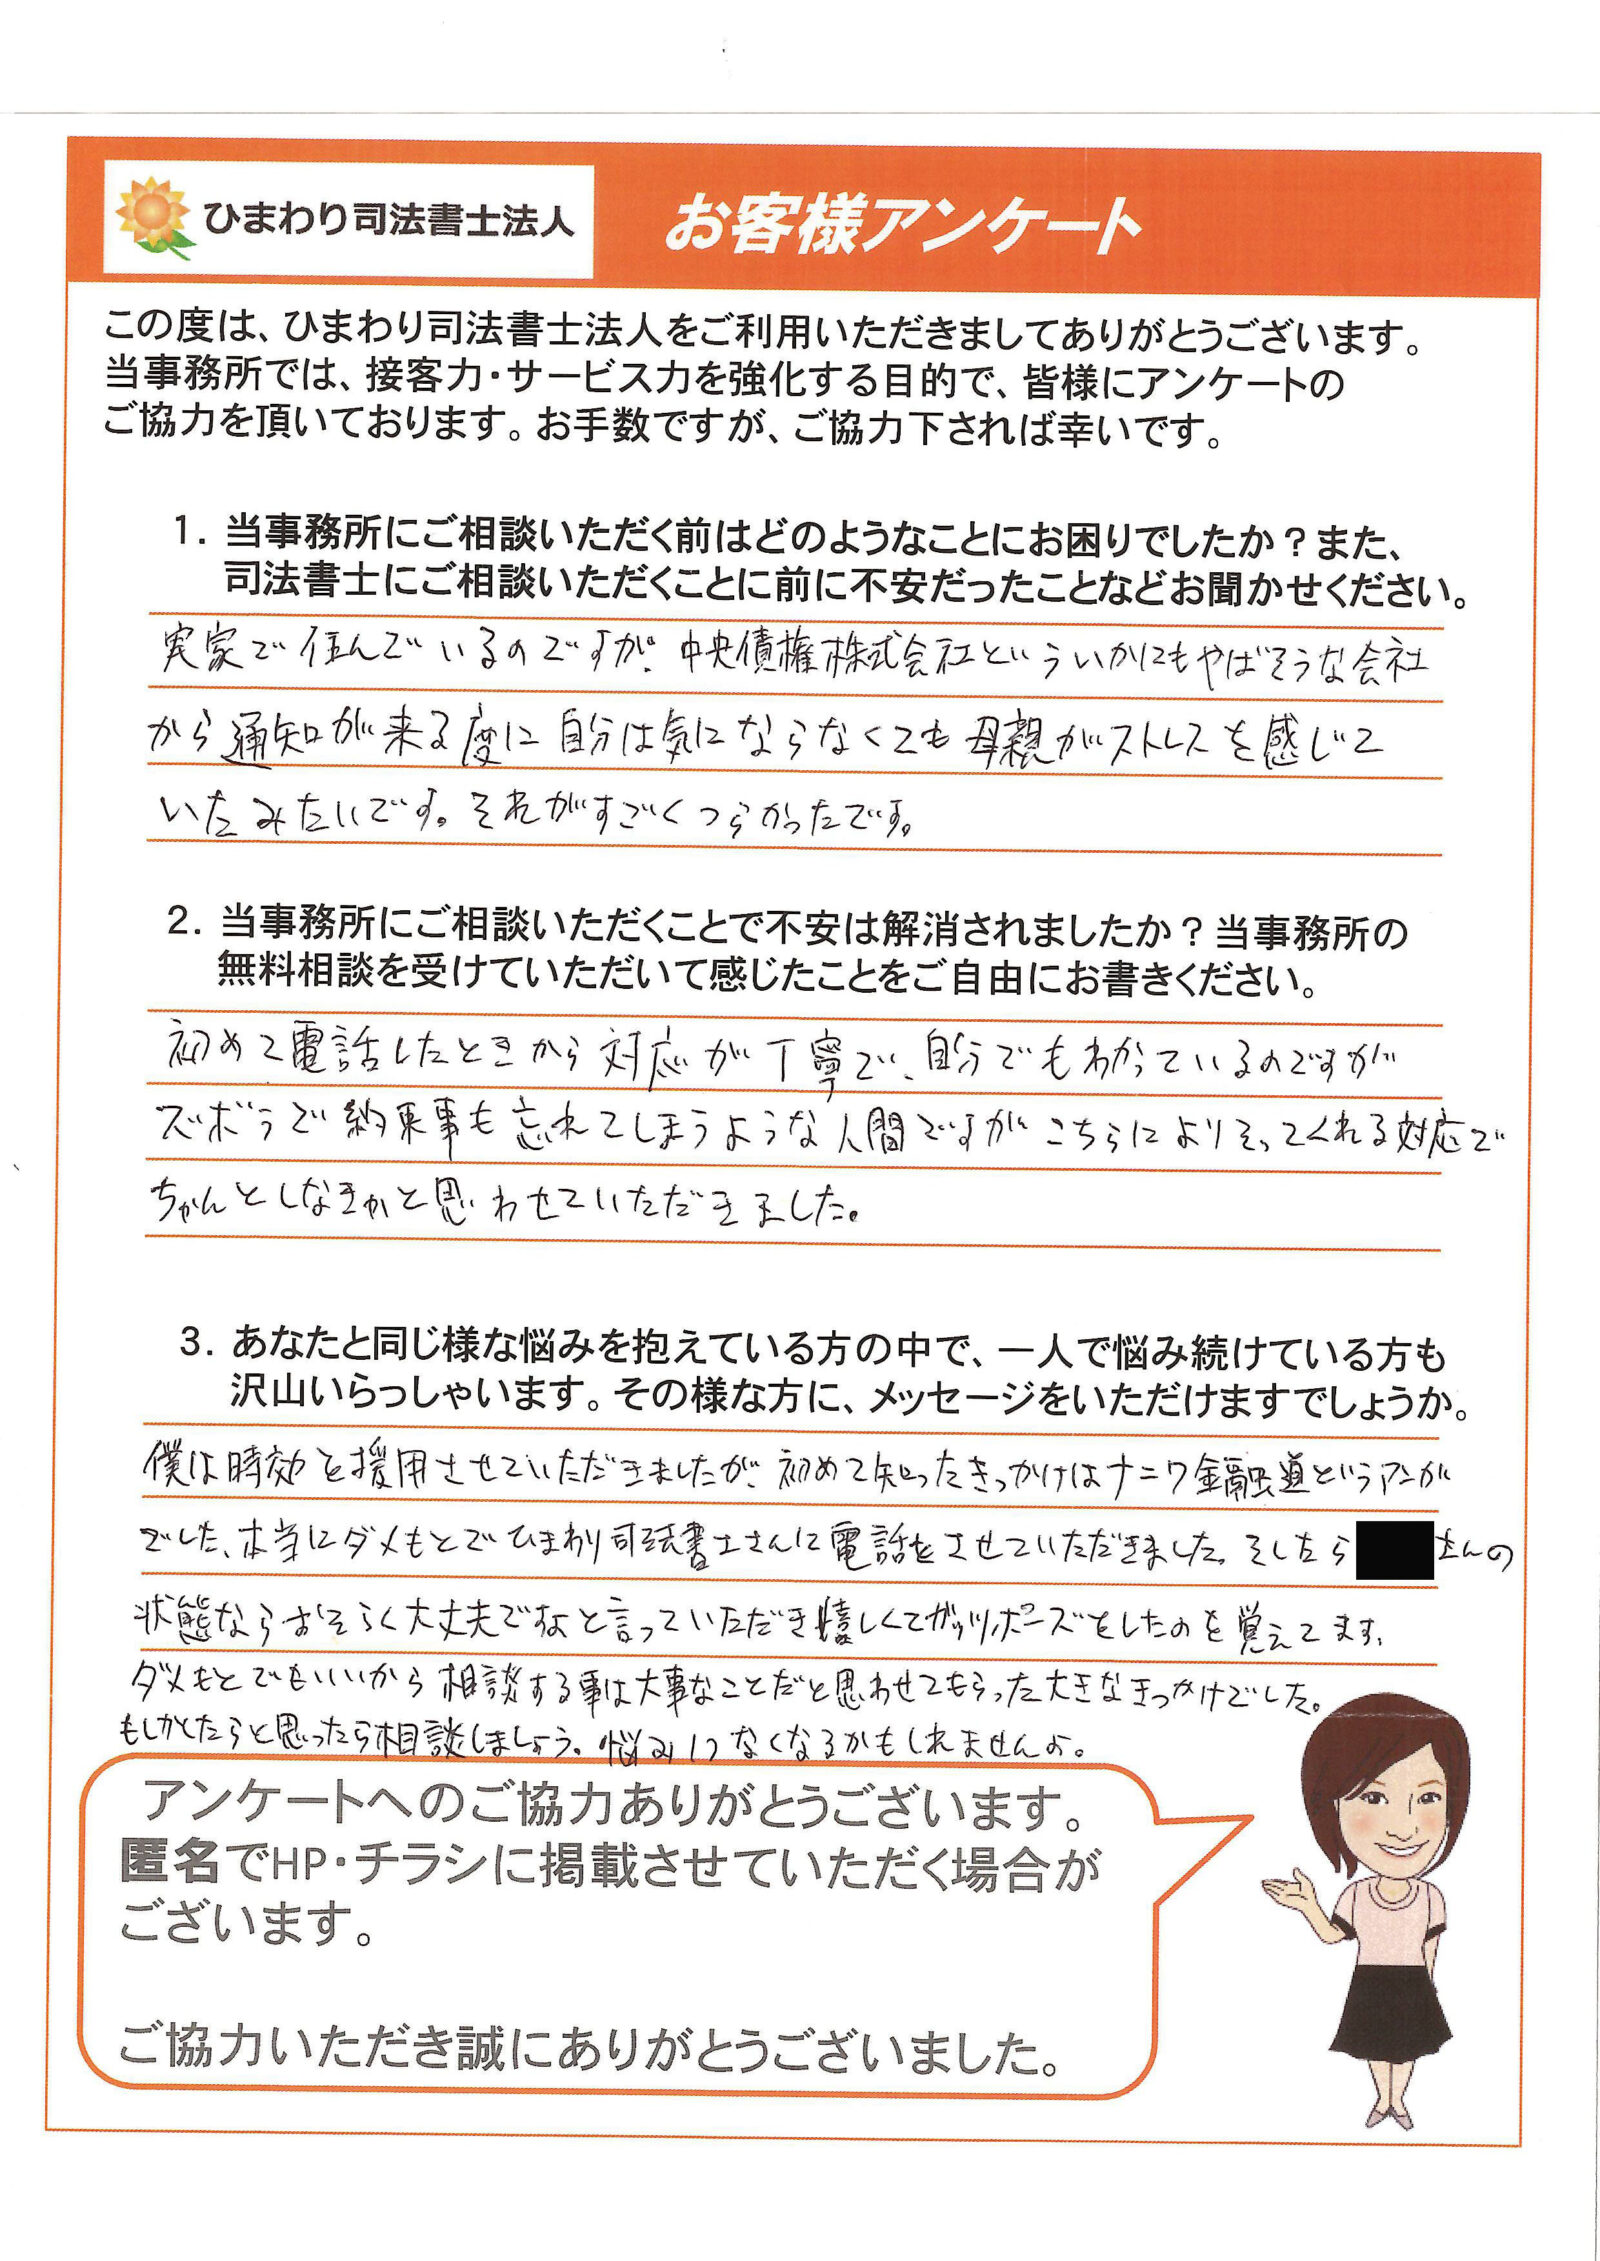 ひまわり司法書士法人
お客様アンケート
この度は、ひまわり司法書士法人をご利用いただきましてありがとうございます。
当事務所では、接客力・サービス力を強化する目的で、皆様にアンケートの
ご協力を頂いております。お手数ですが、ご協力下されば幸いです。
1. 当事務所にご相談いただく前はどのようなことにお困りでしたか？また、
司法書士にご相談いただくことに前に不安だったことなどお聞かせください。
実家で住んでいるのですが、中央債権株式会社といういかにもやばそうな会社
から通知が来る度に自分は気にならなくても母親がストレスを感じて
いたみたいです。それがすごくつらかったです。
2. 当事務所にご相談いただくことで不安は解消されましたか？当事務所の
無料相談を受けていただいて感じたことをご自由にお書きください。
初めて電話したときから対応が丁寧で、自分でもわかっているのですが
ズボラで約束事も忘れてしまうような人間ですがこちらによりそってくれる対応で
ちゃんとしなきゃと思わせていただきました。
3. あなたと同じ様な悩みを抱えている方の中で、一人で悩み続けている方も
沢山いらっしゃいます。その様な方に、メッセージをいただけますでしょうか。
僕は時効を援用させていただきましたが、初めて知ったきっかけはナニワ金融道というマンガ
でした、本当にダメもとでひまわり司法書士さんに電話をさせていただきました。そしたら さんの
状態ならおそらく大丈夫ですよと言っていただき嬉しくてガッツポーズをしたのを覚えてます。
ダメもとでもいいから相談する事は大事なことだと思わせてもらった大きなきっかけでした。
もしかしたらと思ったら相談しましょう。悩み1つなくなるかもしれませんよ。
アンケートへのご協力ありがとうございます。
匿名でHP・チラシに掲載させていただく場合が
ございます。
ご協力いただき誠にありがとうございました。